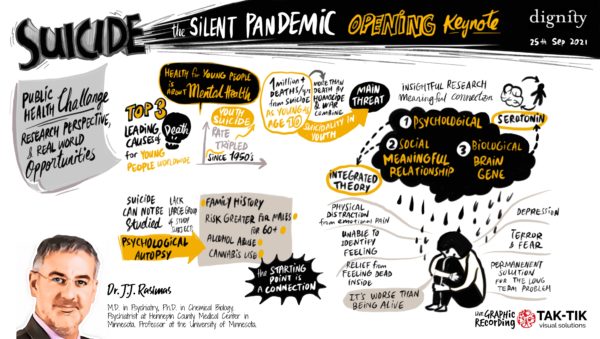 SUICIDE the SILENT PANDEMIC OPENING Keynote
dignity
25th Sep 2021
PUBLIC
HEALTH Challenge
RESEARCH PERSPECTIVE,
& REAL WORLD
Opportunities
TOP 3
LEADING
CAUSES of
Death
for YOUNG
PEOPLE WORLDWIDE
HEALTH for YOUNG PEOPLE
is ABOUT Mental HEALTH
YOUTH
SUICIDE
RATE
TRIPLED
SINCE 1950's
1 million +
DEATHS/yr
from SUICIDE
AS YOUNG AS
AGE 10
MORE THAN
DEATH BY
HOMICIDE
& WAR
COMBINE
SUICIDALITY IN
YOUTH
MAIN
THREAT
INSIGHTFUL RESEARCH
Meaningful connection
SEROTONIN
1 PSYCHOLOGICAL
2 SOCIAL
MEANINGFUL
RELATIONSHIP
3 BIOLOGICAL
BRAIN
GENE
INTEGRATED
THEORY
PHYSICAL
DISTRACTION
from EMOTIONAL PAIN
UNABLE TO
IDENTIFY
FEELING
RELIEF from
FEELING DEAD
INSIDE
IT'S WORSE THAN
BEING ALIVE
DEPRESSION
TERROR
& FEAR
PERMANENENT
SOLUTION
FOR THE LONG
TERM PROBLEM
SUICIDE
CAN NOT BE
Studied
LACK
LARGE GROUP
& STUDY
SUBJECTS
PSYCHOLOGICAL
AUTOPSY
FAMILY HISTORY
RISK GREATER for MALES
for 60+
ALCOHOL ABUSE
CANNABIS USE
the STARTING
POINT IS A
CONNECTION
Dr. J.J. Rasimas
M.D. in Psychiatry, Ph.D. in Chemical Biology,
Psychiatrist at Hennepin County Medical Center in
Minnesota, Professor at the University of Minnesota.
LIVE GRAPHIC
RECORDING
TAK-TIK
visual solutions